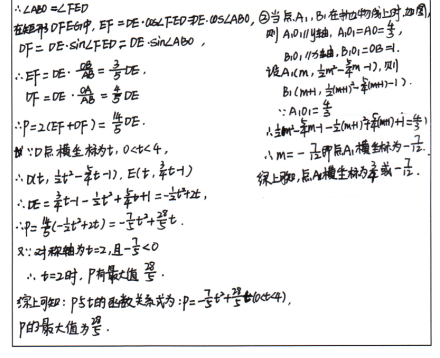 ∴∠ABO=∠FED
在矩形DFEG中, EF=DE·cos∠FED=DE·cos∠ABO,
DF=DE·sin∠FED=DE·sin∠ABO,
∴EF=DE·OB/AB=3/5DE,
DF=DE·OA/AB=4/5DE
∴P=2(EF+DF)=14/5DE.
∵D点横坐标为t, 0<t<4,
∴D(t, 1/2t²-5/4t-1), E(t, 3/4t-1)
∴DE=3/4t-1-1/2t²+5/4t+1=-1/2t²+2t,
∴P=14/5(-1/2t²+2t)=-7/5t²+28/5t.
又∵对称轴为t=2,且-7/5<0
∴t=2时, P有最大值28/5.
综上可知:P与t的函数关系式为:P=-7/5t²+28/5t(0<t<4),
P的最大值为28/5.
②当点A₁, B₁在抛物线上时,如图,
则A₁O₁//y轴, A₁O₁=AO=4/3,
B₁O₁//x轴, B₁O₁=OB=1.
设A₁(m, 1/2m²-5/4m-1),则
B₁(m+1, 1/2(m+1)²-5/4(m+1)-1).
∵A₁O₁=4/3
∴1/2m²-5/4m-1-1/2(m+1)²+5/4(m+1)+1=4/3
∴m=-7/12即点A₁横坐标为-7/12.
综上可知,点A₁横坐标为3/4或-7/12.